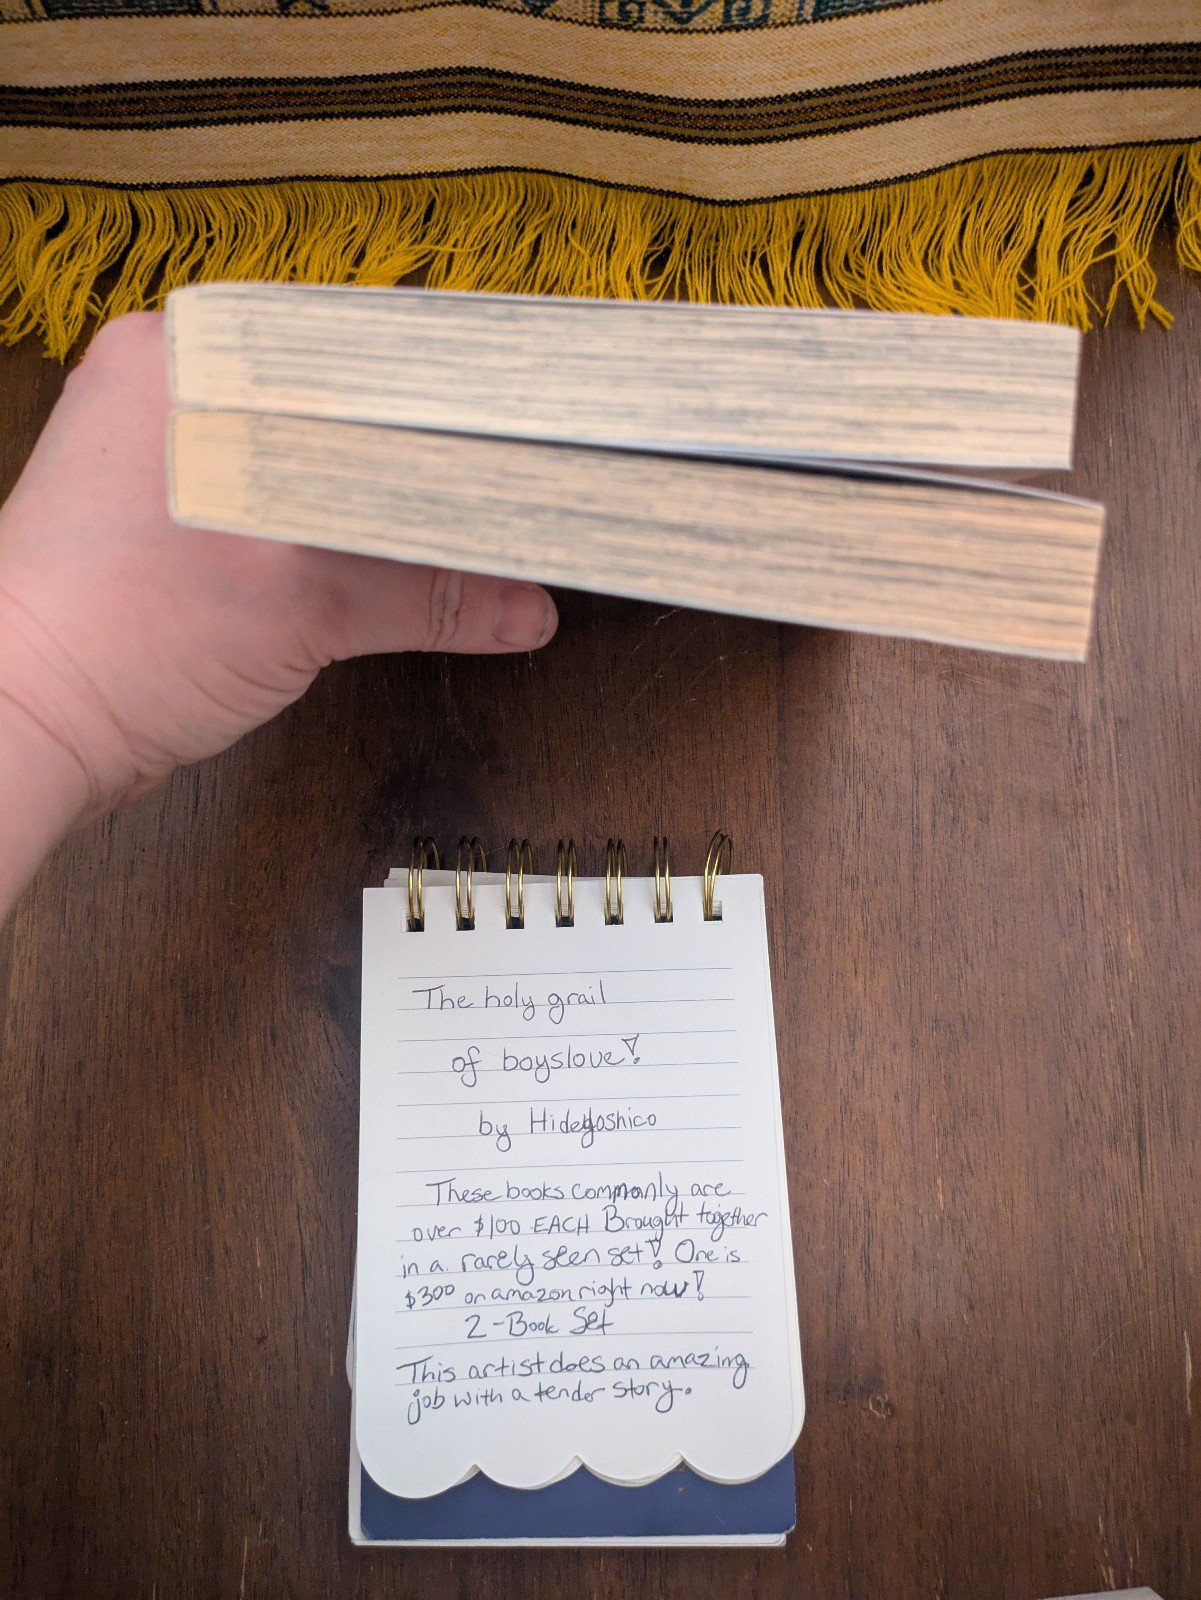 The holy grail
of boyslove!
by Hideyoshico
These books commonly are
over $100 EACH Brought together
in a rarely seen set! One is
$300 on amazon right now!
2-Book Set
This artist does an amazing
job with a tender story.